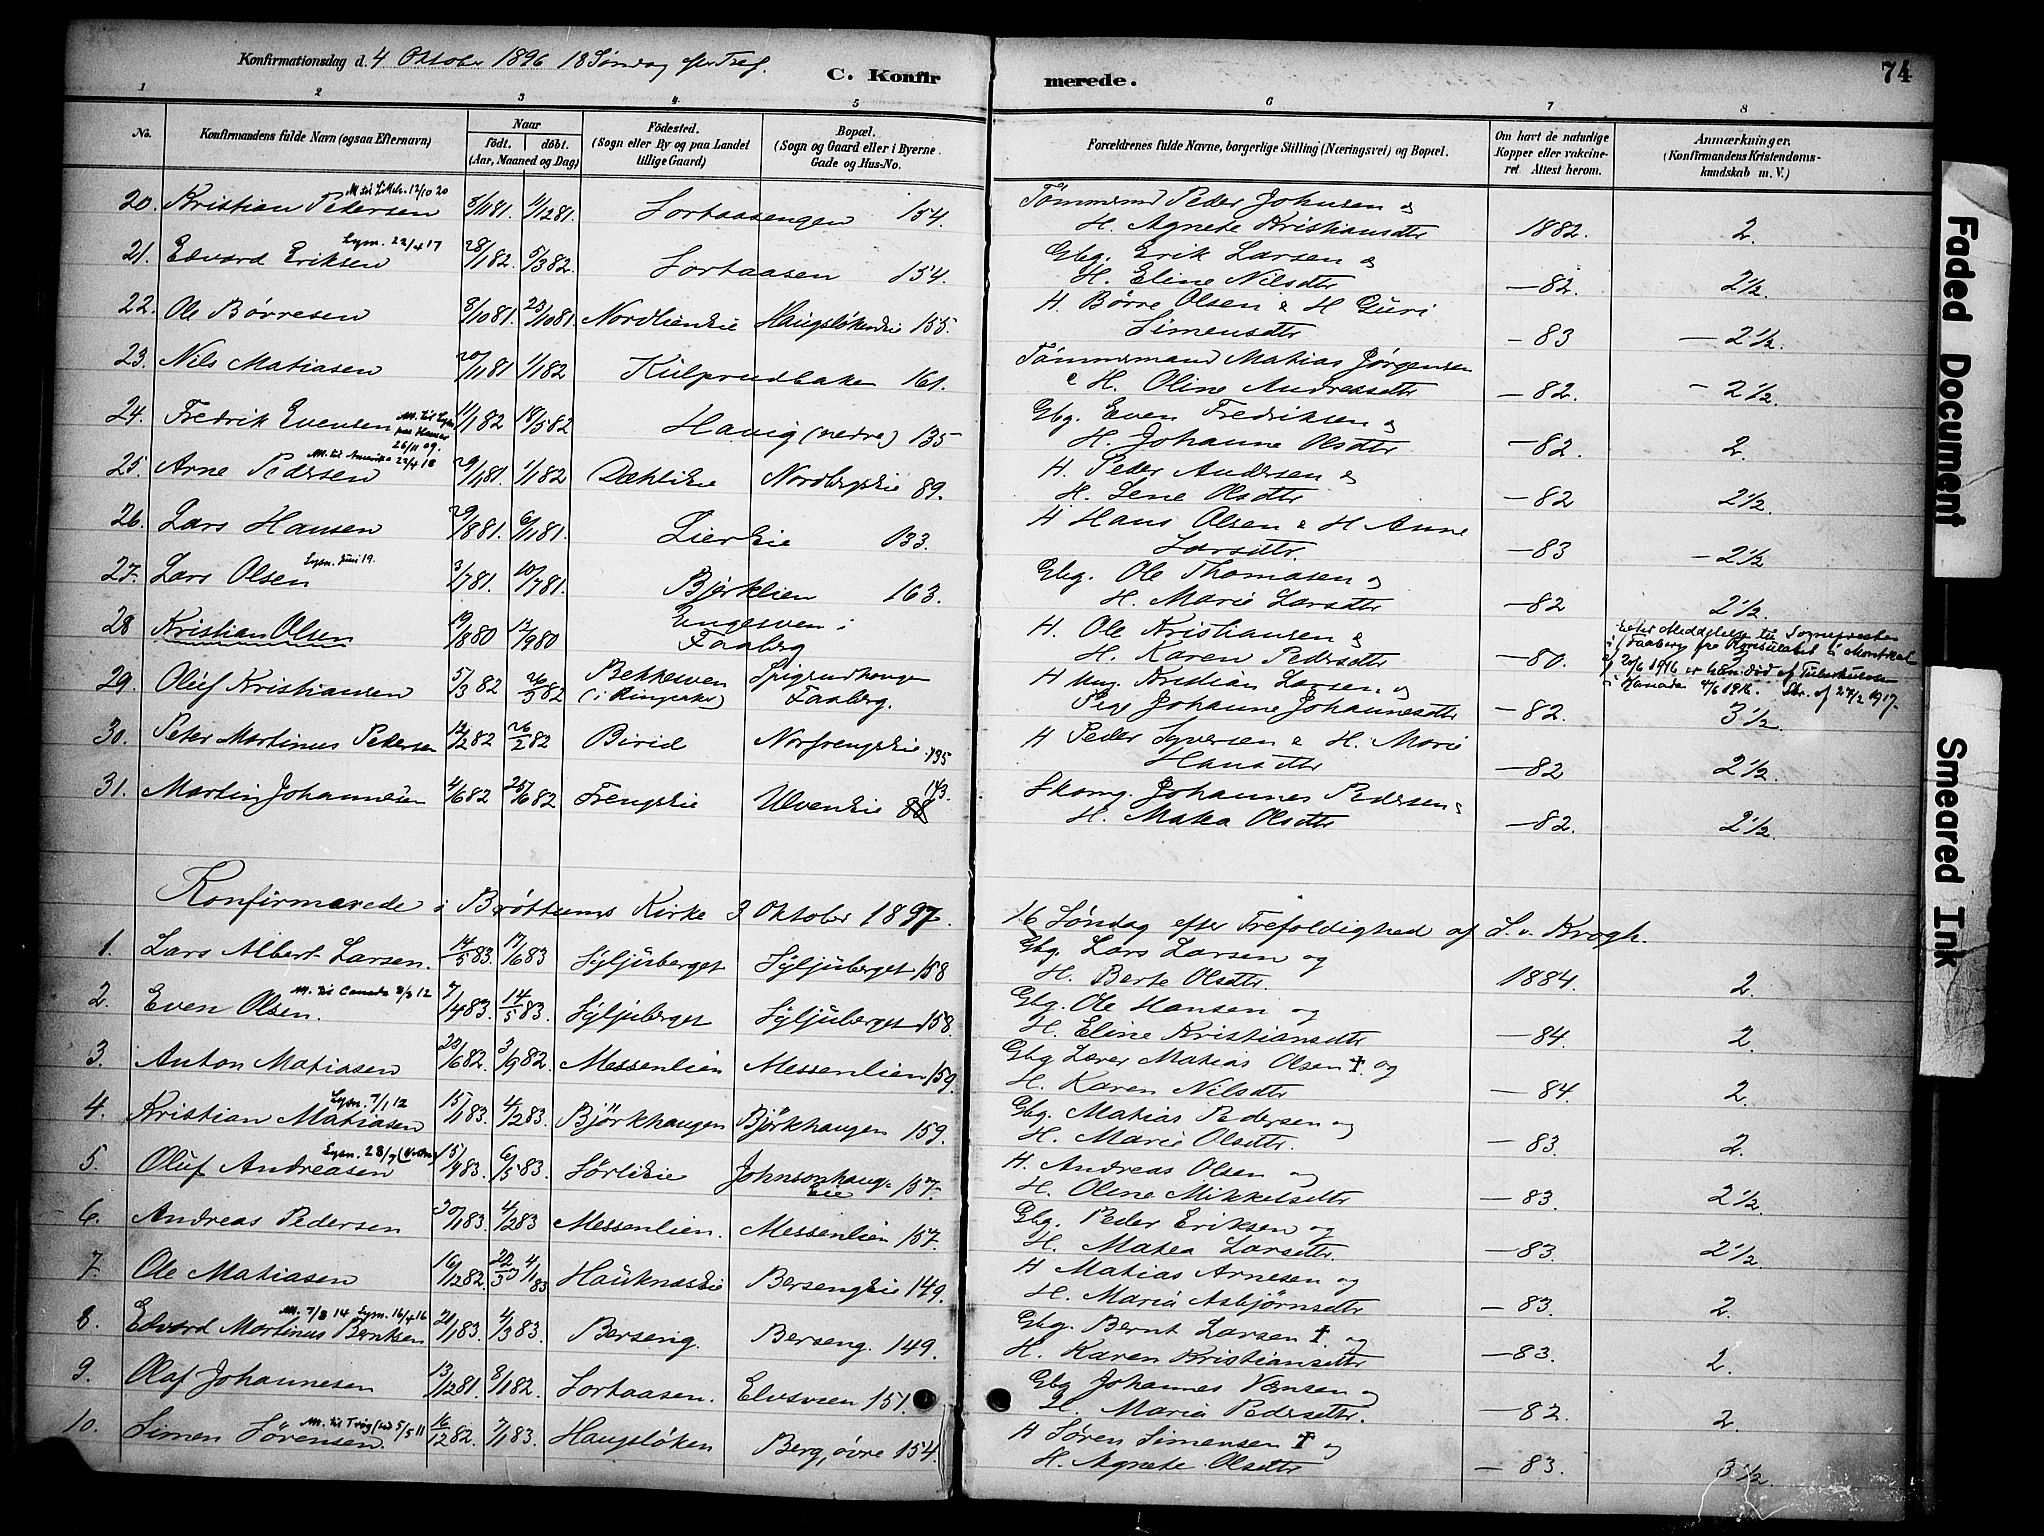 Konfirmationsdag d. 4 Oktober 1896 18 Søndag efter Tref. C. Konfir merede. 74
1 2 3 4 5 6 7 8
No. Konfirmandens fulde Navn (ogsaa Efternavn) Naar født. døbt. (Aar, Maaned og Dag) Fødested. (Sogn eller By og paa Landet tillige Gaard) Bopæl. (Sogn og Gaard eller i Byerne Gade og Hus-No. Forældrenes fulde Navne, borgerlige Stilling (Næringsvei) og Bopæl. Om havt de naturlige Kopper eller vakcineret. Attest herom. Anmærkninger. (Konfirmandens Kristendomskundskab m. V.)
20. Kristian Pedersen 5/11 81. 11/12 81. Sortaasengen 154. Tømmermd Peder Johnsen og H. Agnete Kristiansdtr 1882. 2.
21. Edvard Eriksen Lysn. 22/4 17 28/1 82. 5/3 82. Sortaasen 154. Gbg. Erik Larsen og H. Eline Nilsdtr —82. 2½.
22. Ole Børresen 8/10 81. 23/10 81. Nordlieneie Haugsløkeneie 155. H Børre Olsen & H Guri Simensdtr —83 — 2½.
23. Nils Matiasen 20/11 81 1/1 82 Kulprudbaken 161. Tømmermand Matias Jørgensen & H. Oline Andreasdtr —82. — 2½.
24. Fredrik Evensen M. til Lysn. paa Hamar 26/11 09. 11/1 82 18/5 82 Haug (nedre) 135 Gbg. Even Fredriksen og H. Johanne Olsdtr —82. 2.
25. Arne Pedersen M. til Amerika 22/4 18 29/11 81. 1/1 82 Dæhlieie Nordbergseie 89. H. Peder Andersen og H. Lene Olsdtr —82 2½.
26. Lars Hansen 29/8 81. 6/11 81. Liereie 133. H Hans Olsen & H Anne Larsdtr. —83 — 2½
27. Lars Olsen Lysn. Juni 19. 3/7 81. 10/7 81. Bjørklien 163. Gbg. Ole Thomasen og H. Marie Larsdtr —82 2½.
28 Kristian Olsen 19/8 80 12/9 80 Engesveen i Faaberg H. Ole Kristiansen & H. Karen Pedersdtr —80. Efter Meddelelse til Sognepresten i Faaberg fra Konsulatet i Montreal af 20/6 1916 er han død af Tuberkulose i Kanada 4/6 1916. Skr. af 27/2 1917.
29. Oluf Kristiansen 5/3 82 26/3 82 Bekkesveen (i Ringerike) Spigrudhaugen Faaberg. H Ung. Kristian Larsen og Pige Johanne Johannesdtr —82. 3½.
30. Peter Martinus Pedersen 12/2 82 26/2 82 Birid Norfrengseie 135 H Peder Syversen & H. Marie Hansdtr —82 2½.
31. Martin Johannesen 4/6 82 25/6 82 Frengseie Ulveneie 88 143. Skomg. Johannes Pedersen & H. Matea Olsdtr —82. 2½.
Konfirmerede i Brøttums Kirke 3 Oktober 1897. 16 Søndag efter Trefoldighed af S. v. Krogh.
1. Lars Albert Larsen. 14/5 83. 17/6 83 Syljuberget Syljuberget 158 Gbg. Lars Larsen og H. Berte Olsdtr. 1884. 2.
2. Even Olsen. M. til Canada 8/3 12 7/4 83. 14/5 83. Syljuberget Syljuberget 158. Gbg. Ole Hansen og H. Eline Kristiansdtr —84. 2.
3. Anton Matiasen 20/6 82. 3/9 82. Messenlien Messenlien 159. Gbg Lærer Matias Olsen †. og H. Karen Nilsdtr —84. 2.
4. Kristian Matiasen Lysn. 7/1 12 15/1 83. 4/2 83. Bjørkhaugen Bjørkhaugen 159. Gbg. Matias Pedersen og H. Marie Olsdtr. —83. 2.
5. Oluf Andreasen 15/4 83. 6/5 83. Sørlieie Johnsonhaug. Eie 157. H. Andreas Olsen og H. Oline Mikkelsdtr —83. 2½.
6. Andreas Pedersen 30/1 83. 4/2 83 Messenlien. Messenlien 157. Gbg. Peder Eriksen og H. Matea Larsdtr —83. 2½.
7. Ole Matiasen 16/12 82. 4/1 83 Hauknæseie Bersengeie 149. H Matias Arnesen og H. Maria Asbjørnsdtr —83. 2.
8. Edvard Martinus Berntsen M. 7/3 14 Lysn. 16/4 16 21/1 83. 4/3 83. Berseng. Berseng. 149. Gbg. Bernt Larsen † og H. Karen Kristiansdtr —83. 2.
9. Olaf Johannesen 13/12 81. 8/1 82. Sortaasen. Elvsveen 151. Gbg Johannes Nansen og H. Maria Pedersdtr. —82. 2.
10. Simen Sørensen 16/12 82. 7/1 83. Haugsløken Berg, øvre 154. H Søren Simensen † og H. Agnete Olsdtr —83. 3½.
Faded Document
Smeared Ink